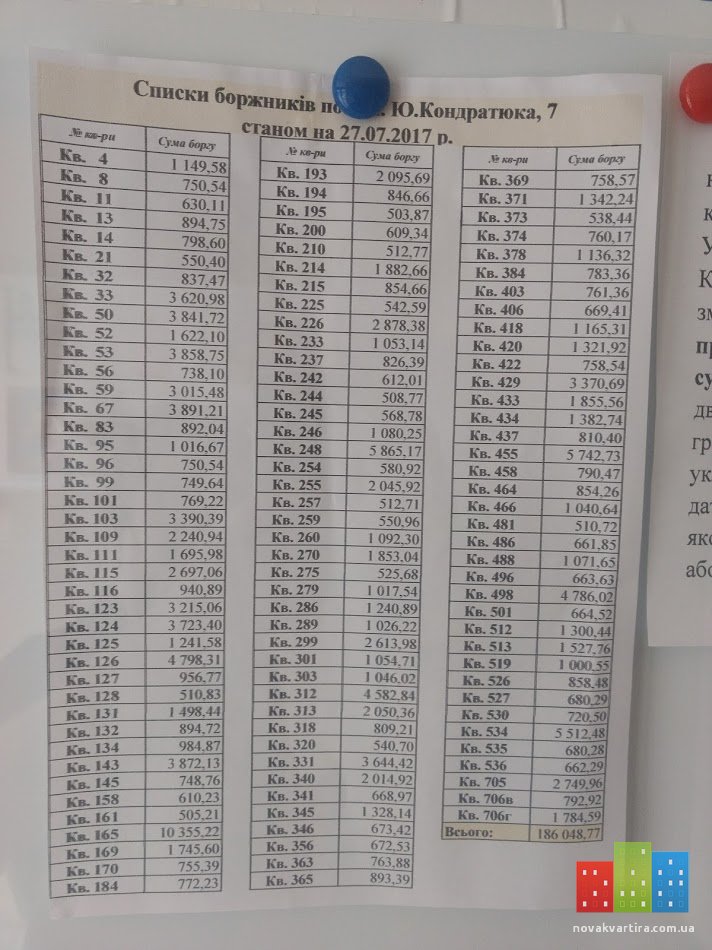 Списки боржників по Ю.Кондратюка, 7
станом на 27.07.2017 р.
№ кв-ри Сума боргу
Кв. 4 1 149,58
Кв. 8 750,54
Кв. 11 630,11
Кв. 13 894,75
Кв. 14 798,60
Кв. 21 550,40
Кв. 32 837,47
Кв. 33 3 620,98
Кв. 50 3 841,72
Кв. 52 1 622,10
Кв. 53 3 858,75
Кв. 56 738,10
Кв. 59 3 015,48
Кв. 67 3 891,21
Кв. 83 892,04
Кв. 95 1 016,67
Кв. 96 750,54
Кв. 99 749,64
Кв. 101 769,22
Кв. 103 3 390,39
Кв. 109 2 240,94
Кв. 111 1 695,98
Кв. 115 2 697,06
Кв. 116 940,89
Кв. 123 3 215,06
Кв. 124 3 723,40
Кв. 125 1 241,58
Кв. 126 4 798,31
Кв. 127 956,77
Кв. 128 510,83
Кв. 131 1 498,44
Кв. 132 894,72
Кв. 134 984,87
Кв. 143 3 872,13
Кв. 145 748,76
Кв. 158 610,23
Кв. 161 505,21
Кв. 165 10 355,22
Кв. 169 1 745,60
Кв. 170 755,39
Кв. 184 772,23
№ кв-ри Сума боргу
Кв. 193 2 095,69
Кв. 194 846,66
Кв. 195 503,87
Кв. 200 609,34
Кв. 210 512,77
Кв. 214 1 882,66
Кв. 215 854,66
Кв. 225 542,59
Кв. 226 2 878,38
Кв. 233 1 053,14
Кв. 237 826,39
Кв. 242 612,01
Кв. 244 508,77
Кв. 245 568,78
Кв. 246 1 080,25
Кв. 248 5 865,17
Кв. 254 580,92
Кв. 255 2 045,92
Кв. 257 512,71
Кв. 259 550,96
Кв. 260 1 092,30
Кв. 270 1 853,04
Кв. 275 525,68
Кв. 279 1 017,54
Кв. 286 1 240,89
Кв. 289 1 026,22
Кв. 299 2 613,98
Кв. 301 1 054,71
Кв. 303 1 046,02
Кв. 312 4 582,84
Кв. 313 2 050,36
Кв. 318 809,21
Кв. 320 540,70
Кв. 331 3 644,42
Кв. 340 2 014,92
Кв. 341 668,97
Кв. 345 1 328,14
Кв. 346 673,42
Кв. 356 672,53
Кв. 363 763,88
Кв. 365 893,39
№ кв-ри Сума боргу
Кв. 369 758,57
Кв. 371 1 342,24
Кв. 373 538,44
Кв. 374 760,17
Кв. 378 1 136,32
Кв. 384 783,36
Кв. 403 761,36
Кв. 406 669,41
Кв. 418 1 165,31
Кв. 420 1 321,92
Кв. 422 758,54
Кв. 429 3 370,69
Кв. 433 1 855,56
Кв. 434 1 382,74
Кв. 437 810,40
Кв. 455 5 742,73
Кв. 458 790,47
Кв. 464 854,26
Кв. 466 1 040,64
Кв. 481 510,72
Кв. 486 661,85
Кв. 488 1 071,65
Кв. 496 663,63
Кв. 498 4 786,02
Кв. 501 664,52
Кв. 512 1 300,44
Кв. 513 1 527,76
Кв. 519 1 000,55
Кв. 526 858,48
Кв. 527 680,29
Кв. 530 720,50
Кв. 534 5 512,48
Кв. 535 680,28
Кв. 536 662,29
Кв. 705 2 749,96
Кв. 706в 792,92
Кв. 706г 1 784,59
Всього: 186 048,77
novakvartira.com.ua